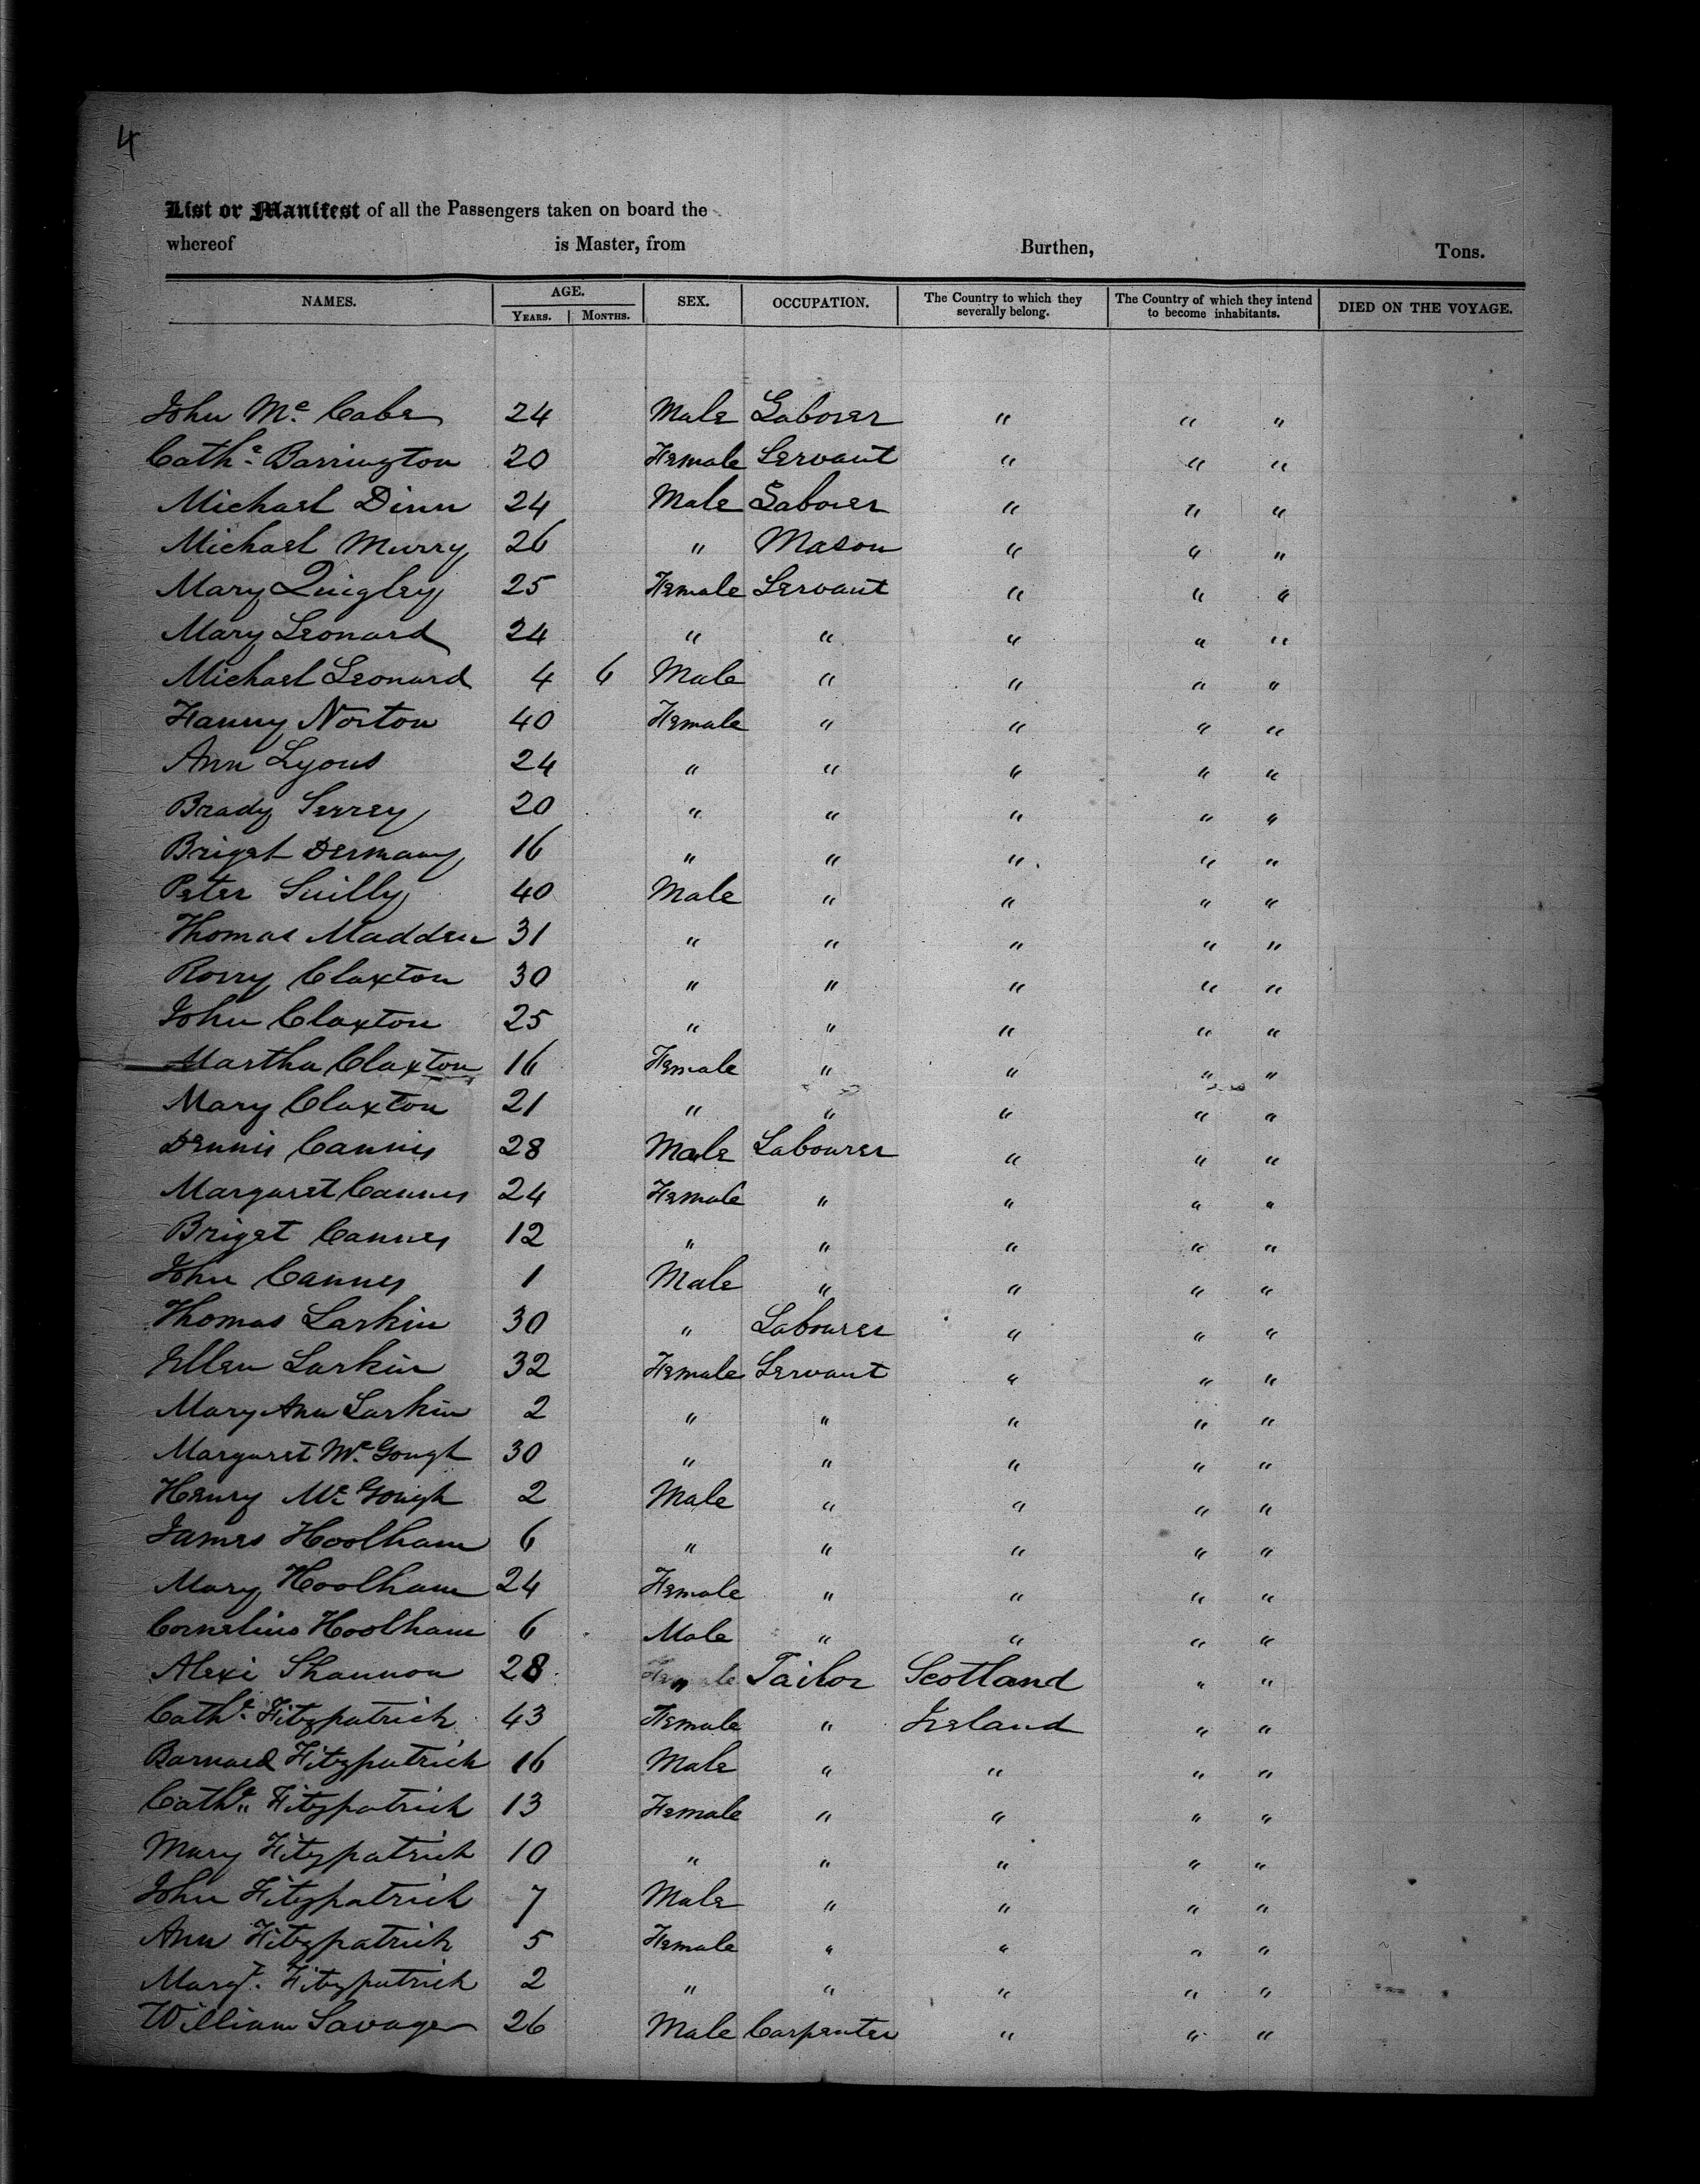 4
List or Manifest of all the Passengers taken on board the
whereof is Master, from Burthen, Tons.
NAMES. AGE. YEARS. MONTHS. SEX. OCCUPATION. The Country to which they severally belong. The Country of which they intend to become inhabitants. DIED ON THE VOYAGE.
John Mc Cabe 24 Male Laborer " " "
Cathe Barrington 20 Female Servant " " "
Michael Dinn 24 Male Laborer " " "
Michael Murry 26 " Mason " " "
Mary Quigley 25 Female Servant " " "
Mary Leonard 24 " " " " "
Michael Leonard 4 6 Male " " " "
Fanny Norton 40 Female " " " "
Ann Lyons 24 " " " " "
Brady 20 " " " " "
Briget 16 " " " " "
Peter 40 Male " " " "
Thomas Madden 31 " " " " "
Rorry Claxton 30 " " " " "
John Claxton 25 " " " " "
Martha Claxton 16 Female " " " "
Mary Claxton 21 " " " " "
Dennis 28 Male Labourer " " "
Margaret 24 Female " " " "
Briget 12 " " " " "
John 1 Male " " " "
Thomas Larkin 30 " Labourer " " "
Ellen Larkin 32 Female Servant " " "
Mary Ann Larkin 2 " " " " "
Margaret Mc Gough 30 " " " " "
Henry Mc Gough 2 Male " " " "
James Hoolham 6 " " " " "
Mary Hoolham 24 Female " " " "
Cornelius Hoolham 6 Male " " " "
Alexi Shannon 28 " Tailor Scotland " "
Cathe Fitzpatrick 43 Female " Ireland " "
Barnard Fitzpatrick 16 Male " " " "
Cathe Fitzpatrick 13 Female " " " "
Mary Fitzpatrick 10 " " " " "
John Fitzpatrick 7 Male " " " "
Ann Fitzpatrick 5 Female " " " "
Margt. Fitzpatrick 2 " " " " "
William Savage 26 Male Carpenter " " "